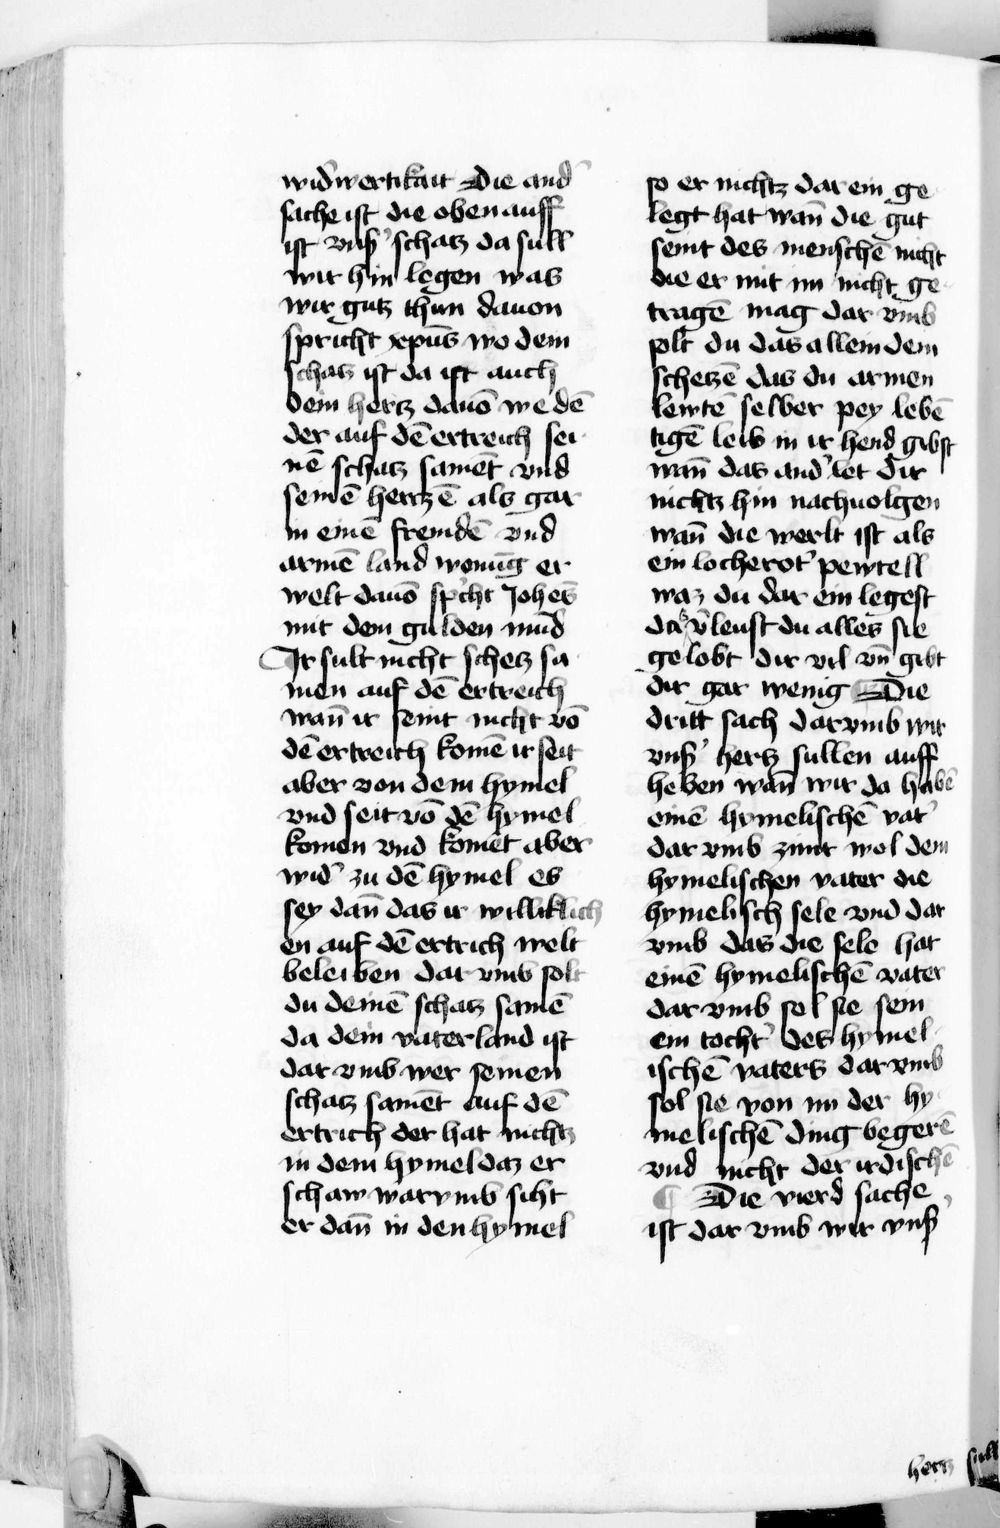 wid̉wertikait Die and̉
sache ist die oben auff
ist vnſ̉ schatz da sull
wir hin legen was
wir gutz thun dauon
spricht xp̄us wo dein
schatz ist da ist auch
dein hertz dauō we dē
der auf dē ertreich sei
nē schatz samēt vnd
seinē hertzē als gar
in einē fremdē vnd
armē land wonūg er
welt dauō sp̉cht Johēs
mit dem gulden mūd
Ir sult nicht schetz sa
men auf dē ertreich
wan̄ ir seint nicht vō
dē ertreich komē ir seit
aber von dem hymel
vnd seit vō dē hymel
komen vnd komēt aber
wid̉ zu dē hymel es
sey dan̄ das ir williklich
en auf dē ertrich welt
beleiben dar vmb solt
du deinē schatz samē
da dein vaterland ist
dar vmb wer seinen
schatz samēt auf dē
ertrich der hat nichtz
in dem hymel daz er
schaw warvmb siht
er dan̄ in den hymel
so er nichtz dar ein ge
legt hat wan̄ die gut
seint des menschē nicht
die er mit im nicht ge
tragē mag dar vmb
solt du das allein dein
schetzē das du armen
lewtē selber pey lebē
tigē leib in ir hend gibst
wan̄ das and̉ let dir
nichtz hin nachuolgen
wan̄ die werlt ist als
ein locherot̉ pewtell
waz du dar ein legest
das v̉leust du alles sie
gelobt dir vil vn̄ gibt
dir gar wenig Die
dritt sach darvmb wir
vnſ̉ hertz sullen auff
heben wan̄ wir da habē
einē hymelischē vat̉
dar vmb zimt wol dem
hymelischen vater die
hymelisch sele vnd dar
vmb das die sele hat
einē hymelischē vater
dar vmb sol sie sein
ein tocht̉ des hymel
ischē vaters dar vmb
sol sie von im der hy
melischē ding begerē
vnd nicht der irdischē
¶ Die vierd sache
ist dar vmb wir vnſ̉
hertz sull